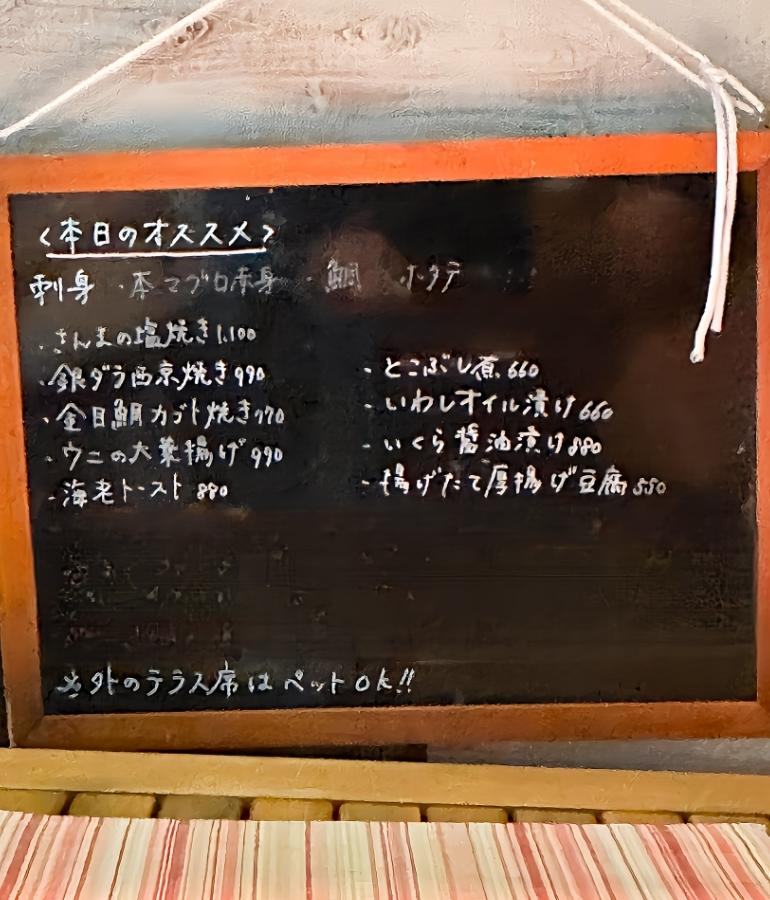 <本日のオススメ>
刺身 ・本マグロ赤身 ・鯛 ホタテ
・さんまの塩焼き 1,100
・銀ダラ西京焼き 990
・金目鯛カブト焼き 770
・ウニの大葉揚げ 990
・海老トースト 880
・とこぶし煮 660
・いわしオイル漬け 660
・いくら醤油漬け 880
・揚げたて厚揚げ豆腐 550
※外のテラス席はペットOK!!